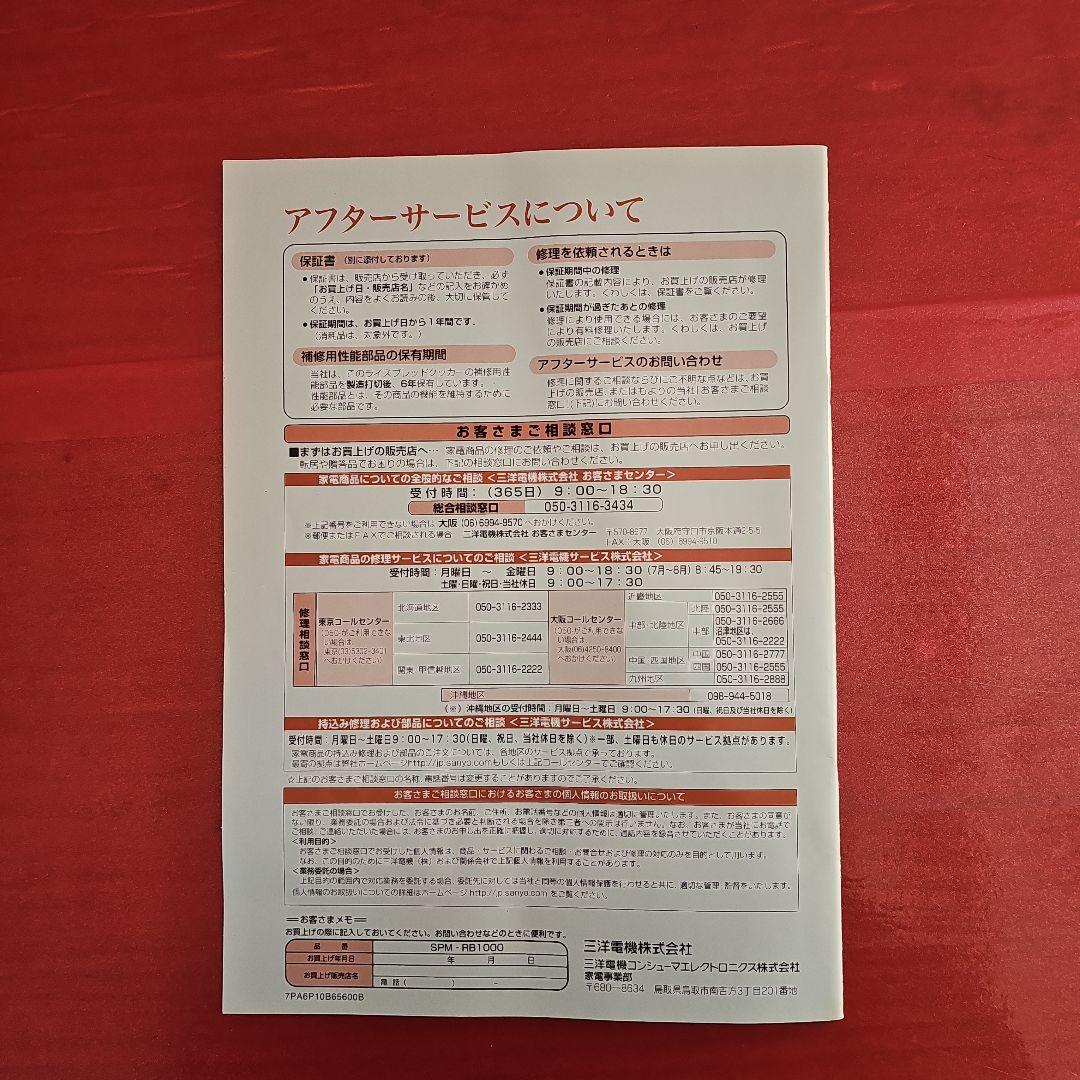 アフターサービスについて
保証書 (別に添付しております)
●保証書は、販売店から受け取っていただき、必ず
「お買上げ日・販売店名」などの記入をお確かめ
のうえ、内容をよくお読みの後、大切に保管して
ください。
●保証期間は、お買上げ日から1年間です。
(消耗品は、対象外です。)
補修用性能部品の保有期間
当社は、このライスブレッドクッカーの補修用性
能部品を製造打切後、6年保有しています。
性能部品とは、その商品の機能を維持するために
必要な部品です。
修理を依頼されるときは
●保証期間中の修理
保証書の記載内容により、お買上げの販売店が修理
いたします。くわしくは、保証書をご覧ください。
●保証期間が過ぎたあとの修理
修理により使用できる場合には、お客さまのご要望
により有料修理いたします。くわしくは、お買上げ
の販売店にご相談ください。
アフターサービスのお問い合わせ
修理に関するご相談ならびにご不明な点などは、お買
上げの販売店、またはもよりの当社「お客さまご相談
窓口」(下記)にお問い合わせください。
お客さまご相談窓口
■まずはお買上げの販売店へ… 家電商品の修理のご依頼やご相談は、お買上げの販売店へお申し出ください。
転居や贈答品でお困りの場合は、下記の相談窓口にお問い合わせください。
家電商品についての全般的なご相談 <三洋電機株式会社 お客さまセンター>
受付時間:(365日) 9:00〜18:30
総合相談窓口 050-3116-3434
※上記番号をご利用できない場合は 大阪 (06)6994-9570 へおかけください。
※郵便またはFAXでご相談される場合 三洋電機株式会社 お客さまセンター 〒570-8677 大阪府守口市京阪本通2-5-5
FAX:大阪 (06) 6994-9510
家電商品の修理サービスについてのご相談 <三洋電機サービス株式会社>
受付時間:月曜日 〜 金曜日 9:00〜18:30 (7月〜8月) 8:45〜19:30
土曜・日曜・祝日・当社休日 9:00〜17:30
修理相談窓口
東京コールセンター
(050-がご利用できな
い場合は
東京(03)5302-3401
へおかけください)
北海道地区 050-3116-2333
東北地区 050-3116-2444
関東・甲信越地区 050-3116-2222
大阪コールセンター
(050-がご利用できな
い場合は
大阪(06)4250-8400
へおかけください)
近畿地区 050-3116-2555
中部・北陸地区 北陸 050-3116-2555
中部 050-3116-2666
沼津地区は、
050-3116-2222
中国・四国地区 中国 050-3116-2777
四国 050-3116-2555
九州地区 050-3116-2888
沖縄地区 098-944-5018
(※) 沖縄地区の受付時間:月曜日〜土曜日 9:00〜17:30 (日曜、祝日及び当社休日を除く)
持込み修理および部品についてのご相談 <三洋電機サービス株式会社>
受付時間:月曜日〜土曜日9:00〜17:30(日曜、祝日、当社休日を除く)※一部、土曜日も休日のサービス拠点があります。
家電商品の持込み修理および部品のご注文については、各地区のサービス拠点で承っております。
最寄の拠点は弊社ホームページhttp://jp.sanyo.comもしくは上記コールセンターでご確認ください。
☆上記のお客さまご相談窓口の名称、電話番号は変更することがありますのでご了承ください。
お客さまご相談窓口におけるお客さまの個人情報のお取扱いについて
お客さまご相談窓口でお受けした、お客さまのお名前、ご住所、お電話番号などの個人情報は適切に管理いたします。また、お客さまの同意が
ない限り、業務委託の場合および法令に基づき必要と判断される場合を除き第三者への開示は行いません。なお、お客さまが当社にお電話で
ご相談、ご連絡いただいた場合には、お客さまのお申し出を正確に把握し、適切に対応するために、通話内容を録音させていただくことがあります。
<利用目的>
お客さまご相談窓口でお受けした個人情報は、商品・サービスに関わるご相談・お問合せおよび修理の対応のみを目的として用います。
なお、この目的のために三洋電機(株)および関係会社で上記個人情報を利用することがあります。
<業務委託の場合>
上記目的の範囲内で対応業務を委託する場合、委託先に対しては当社と同等の個人情報保護を行わせると共に、適切な管理・監督をいたします。
個人情報のお取扱いについての詳細はホームページ http://jp.sanyo.com をご覧ください。
==お客さまメモ==
お買上げの際に記入しておいてください。お問い合わせなどのときに便利です。
品番 SPM-RB1000
お買上げ年月日 年 月 日
お買上げ販売店名
電話( ) -
7PA6P10B65600B
三洋電機株式会社
三洋電機コンシューマエレクトロニクス株式会社
家電事業部
〒680-8634 鳥取県鳥取市南吉方3丁目201番地